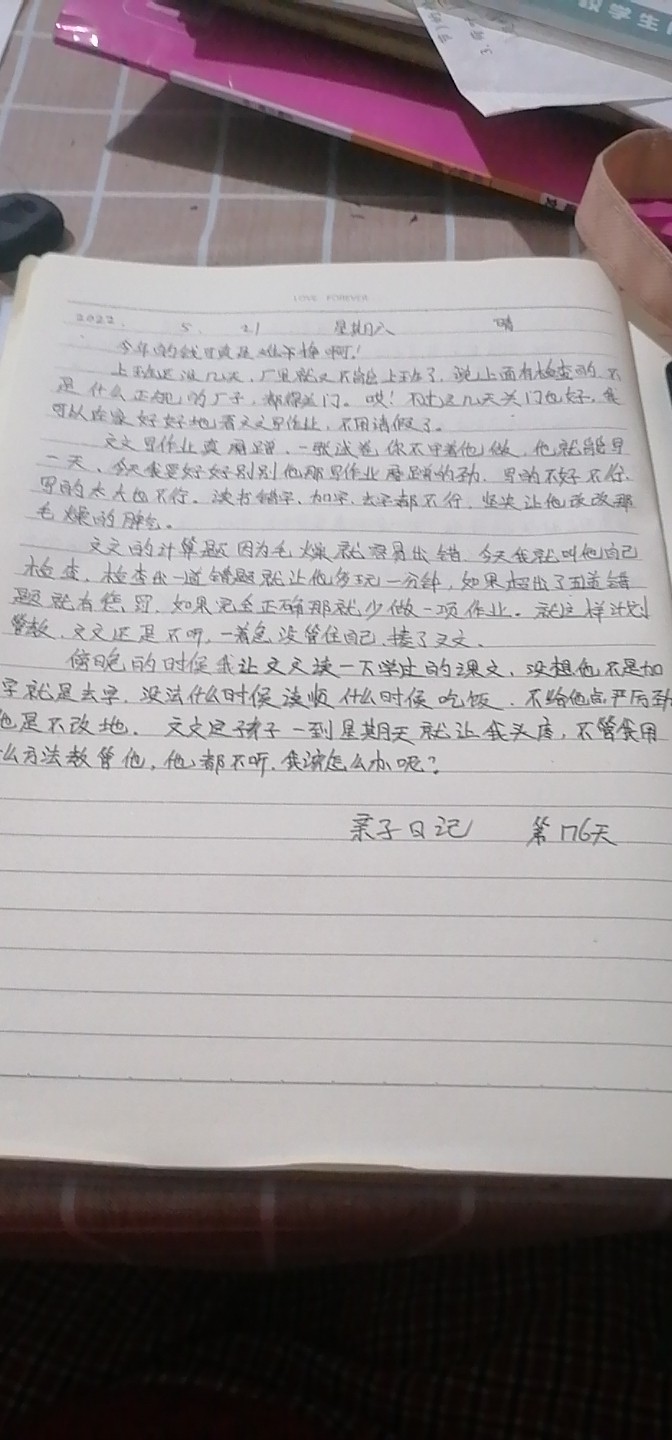 数学生
LOVE FOREVER
2022. 5. 21 星期六 晴
今年的钱可真是难下挣啊！
上班还没几天，厂里就又不能上班了，说上面有检查的，不
是什么正规的厂子，都得关门。哎！不过这几天关门也好，我
可以在家好好地看文文写作业，不用请假了。
文文写作业真磨蹭，一张试卷，你不守着他做，他就能写
一天，今天我要好好别别他那写作业磨蹭的劲，写的不好不行，
写的太大也不行。读书错字、加字、去字都不行，坚决让他改改那
毛燥的脾气。
文文的计算题因为毛燥就容易出错，今天我就叫他自己
检查，检查出一道错题就让他多玩一分钟，如果超出了五道错
题就有惩罚，如果完全正确那就少做一项作业。就这样计划
管教，文文还是不听，一着急没管住自己，揍了文文。
傍晚的时候我让文文读一下学过的课文，没想他不是加
字就是去字，没法什么时候读顺什么时候吃饭，不给他点严厉劲
他是不改地。文文这孩子一到星期天就让我头疼，不管我用
么方法教管他，他都不听，我该怎么办呢？
亲子日记 第176天